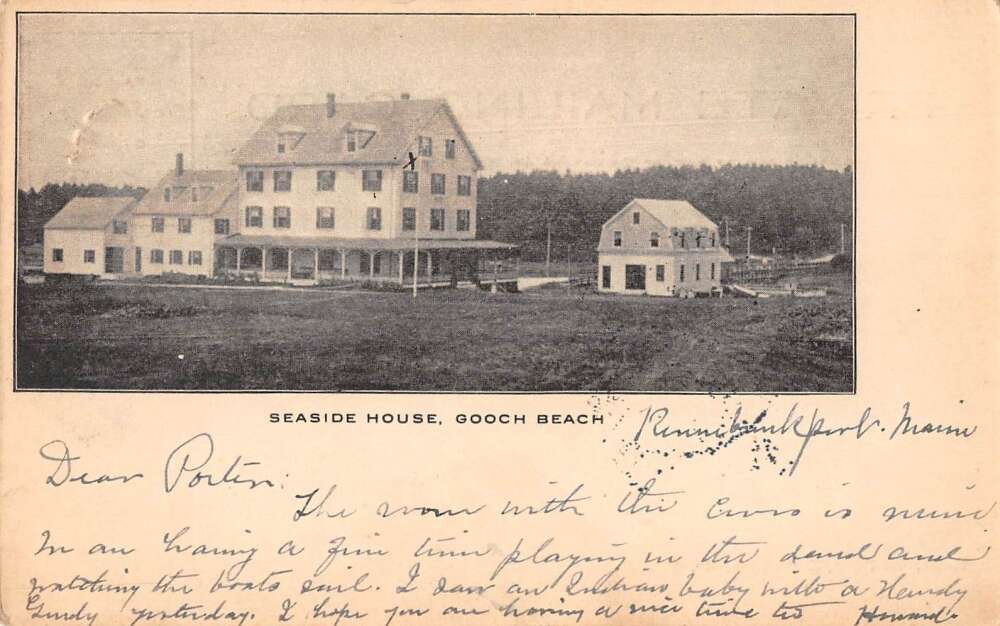 SEASIDE HOUSE, GOOCH BEACH
Kennebunkport. Maine
Dear Porter:
The room with the cross is mine
I'm having a fine time playing in the sand and
watching the boats sail. I saw an Indian baby with a Hurdy
Gurdy yesterday. I hope you are having a nice time too Howard.